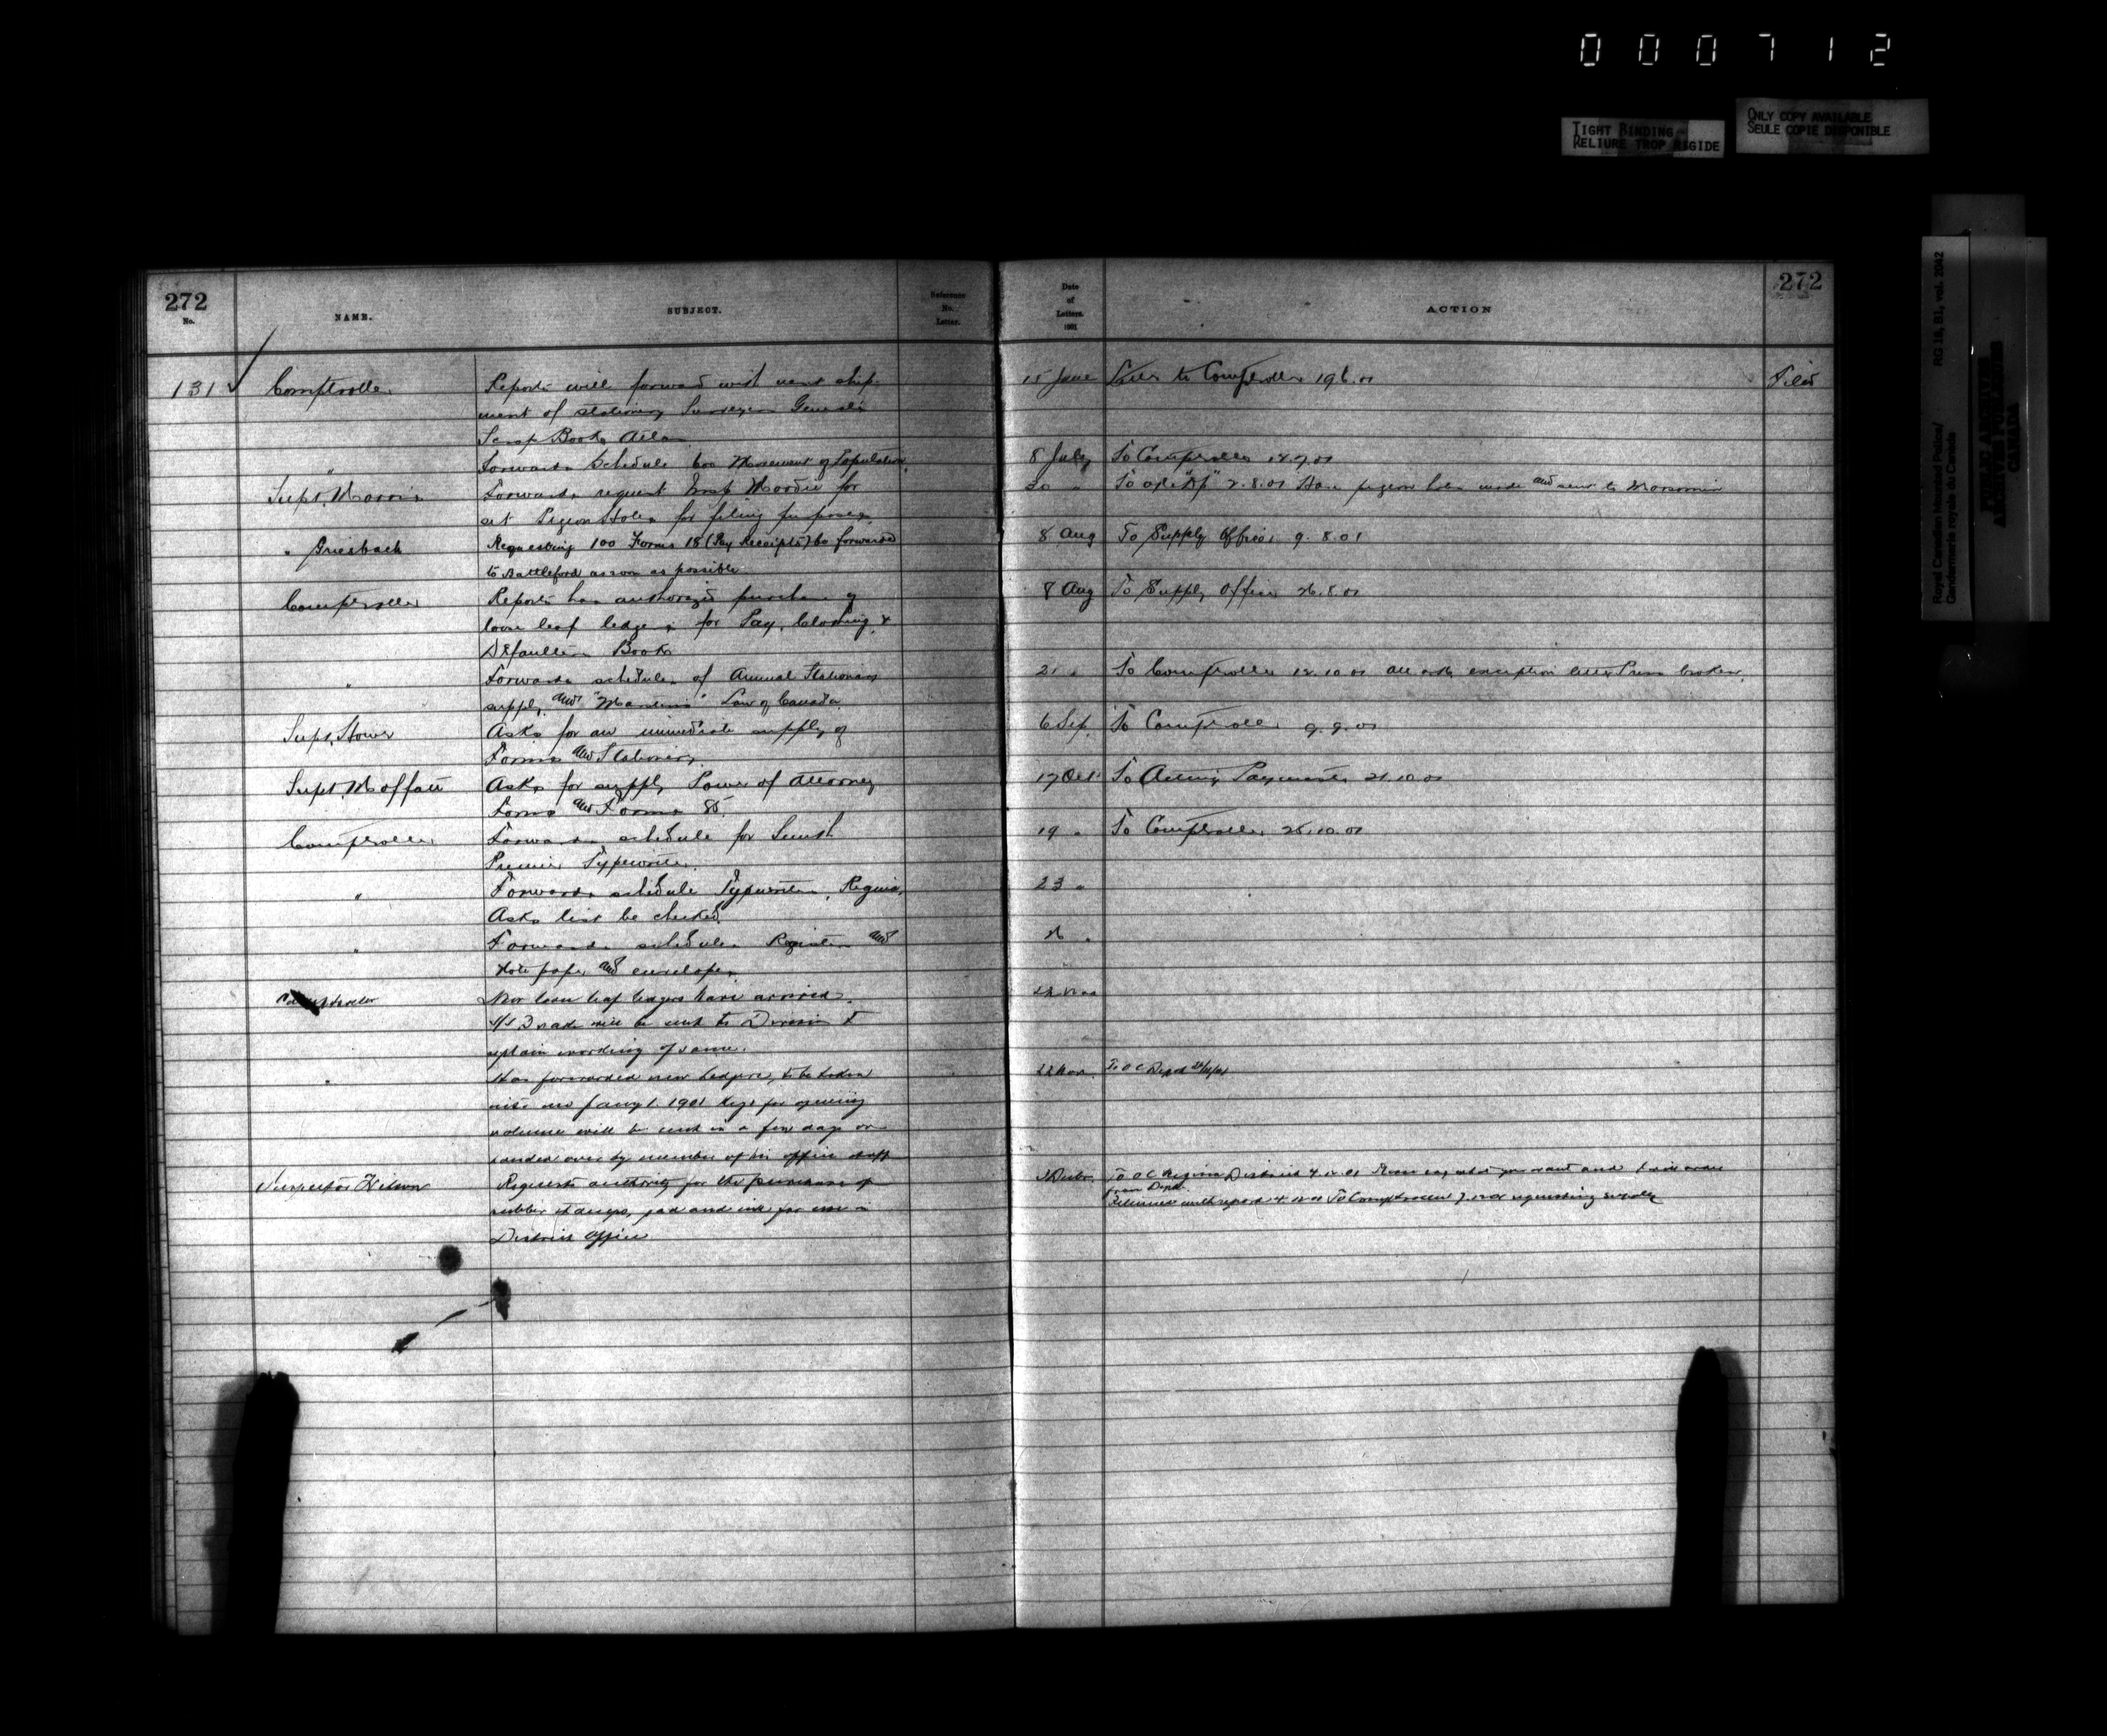 000712
TIGHT BINDING
RELIURE TROP RIGIDE
ONLY COPY AVAILABLE
SEULE COPIE DISPONIBLE
RG 18, B1, vol. 2042
Royal Canadian Mounted Police/
Gendarmerie royale du Canada
PUBLIC ARCHIVES
ARCHIVES PUBLIQUES
CANADA
272
No.
NAME.
SUBJECT.
Reference
No.
Letter.
Date
of
Letters.
1901
ACTION
272
131 ✓ Comptroller Reports will forward with next ship- 15 June Letter to Comptroller 19.6.01 Filed
ment of stationery Surveyor General's
Scrap Books
" Forwards Schedule 600 Movement of Population. 8 July To Comptroller
Supt. Morris Forwards request Insp. Moodie for 30 " To 2.8.01 Have pigeon holes made and sent to Moosomin
set Pigeon Holes for filing purposes.
" Griesbach Requesting 100 Forms 18 (Pay Receipts) be forwarded 8 Aug To Supply Officer 9.8.01
to Battleford as soon as possible
Comptroller Reports has authorized purchase of 8 Aug To Supply Officer 26.8.01
loose leaf ledgers for Pay, Clothing &
Defaulters Books
" Forwards schedules of Annual Stationery 21 " To Comptroller 12.10.01 all with exception letter Press broken.
supply and Law of Canada
Supt. Howe Asks for an immediate supply of 6 Sep. To Comptroller 9.9.01
Forms and Stationery.
Supt. Moffatt Asks for supply Power of Attorney 17 Oct To Acting Paymaster 21.10.01
Forms and Forms 85.
Comptroller Forwards schedule for Smith 19 " To Comptroller 25.10.01
Premier Typewriter.
" Forwards schedule Typewriters, Regina. 23 "
Asks list be checked.
" Forwards schedules Registers and 26 "
Note paper and envelopes.
Comptroller New loose leaf ledgers have arrived. 22 Nov
will be sent to Division to
explain working of same.
" Has forwarded new ledgers, to be taken 22 Nov. To O C Depot
into use Jany 1. 1901 Keys for opening
volume will be sent in a few days or
handed over by member of his office staff
Inspector Requests authority for the purchase of To O C Regina District 4.12.01 say what you want and
rubber stamps, pad and ink for use in from Depot. Returned with report To Comptroller requesting supply
District Office